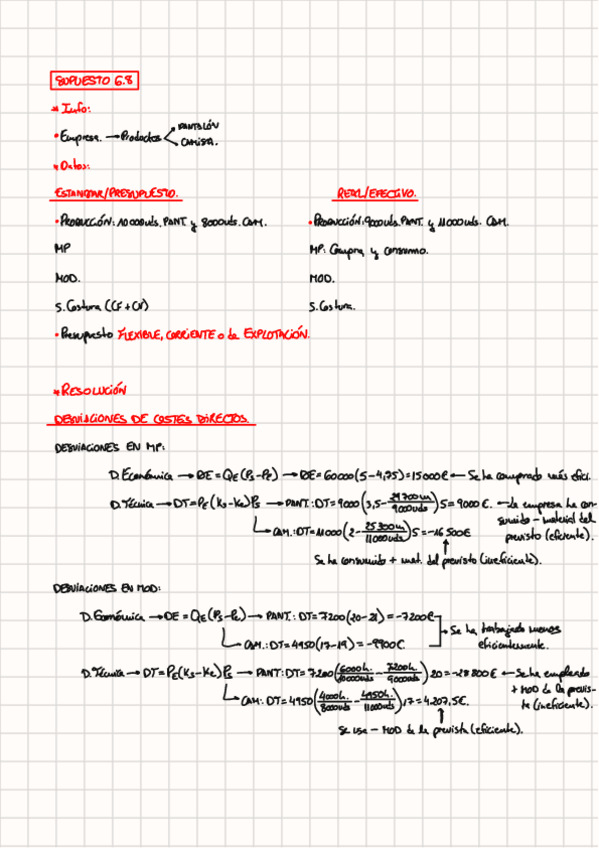 SUPUESTO 6.8
* Info:
• Empresa. → Productos < PANTALÓN
CAMISA.
* Datos:
ESTANDAR/PRESUPUESTO. REAL/EFECTIVO.
• PRODUCCIÓN: 10000uds. PANT. y 8000uds. CAM. • PRODUCCIÓN: 9000uds. PANT. y 11000uds. CAM.
MP MP: Compra y consumo.
MOD. MOD.
S. Costura (CF + CV) S. Costura.
• Presupuesto FLEXIBLE, CORRIENTE o de EXPLOTACIÓN.
* RESOLUCIÓN
DESVIACIONES DE COSTES DIRECTOS.
DESVIACIONES EN MP:
D. Económica → DE = QE (Ps - PE) → DE = 60000 (5 - 4,75) = 15000€ ← Se ha comprado más efici.
D. Técnica → DT = PE (Ks - KE) Ps → PANT.: DT = 9000 (3,5 - 29700m/9000uds) 5 = 9000 €. ← La empresa ha consumido - material del previsto (eficiente).
↳ CAM.: DT = 11000 (2 - 25300m/11000uds) 5 = -16500€
Se ha consumido + mat. del previsto (ineficiente).
DESVIACIONES EN MOD:
D. Económica → DE = QE (Ps - PE) → PANT.: DT = 7200 (20 - 21) = -7200€
↳ CAM.: DT = 4950 (17 - 19) = -9900€.
→ Se ha trabajado menos eficientemente.
D. Técnica → DT = PE (Ks - KE) Ps → PANT: DT = 7200 (6000h./10000uds - 7200h./9000uds) 20 = -28800€ ← Se ha empleado + MOD de la prevista (ineficiente).
↳ CAM.: DT = 4950 (4000h./8000uds - 4950h./11000uds) 17 = 4.207,5€.
Se usa - MOD de la prevista (eficiente).